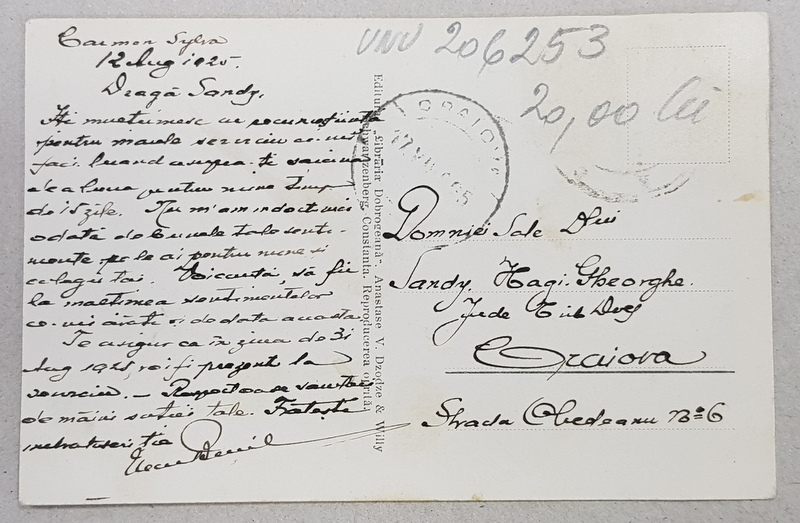 Carmen Sylva
12 Aug 1925.
Dragă Sandy,
Îți mulțumesc cu recunoștință
pentru marele serviciu ce-mi
faci luând asupra-ți sarcina
de a lucra pentru mine timp
de 15 zile. Nu m'am îndoit nici
odată de bunele tale senti-
mente pe le ai pentru mine și
colegu tai. Voi cuta, să fiu
la înălțimea sentimentelor
ce-mi arăți și de data aceasta.
Te asigur ca în ziua de 31
Aug 1925, voi fi prezent la
serviciu. — Respectoase sărutări
de mâini soției tale. Frățește
îmbrățișeri ție
Editura „Librăria Dobrogeană": Anastase V. Dzodze & Willy
Schwartzenberg, Constanța. Reproducerea oprită.
UNU 206253
20,00 lei
CRAIOVA
Domniei Sale Dlui
Sandy. Hagi. Gheorghe.
Jude Trib Dolj
Craiova
Strada Obedeanu No 6